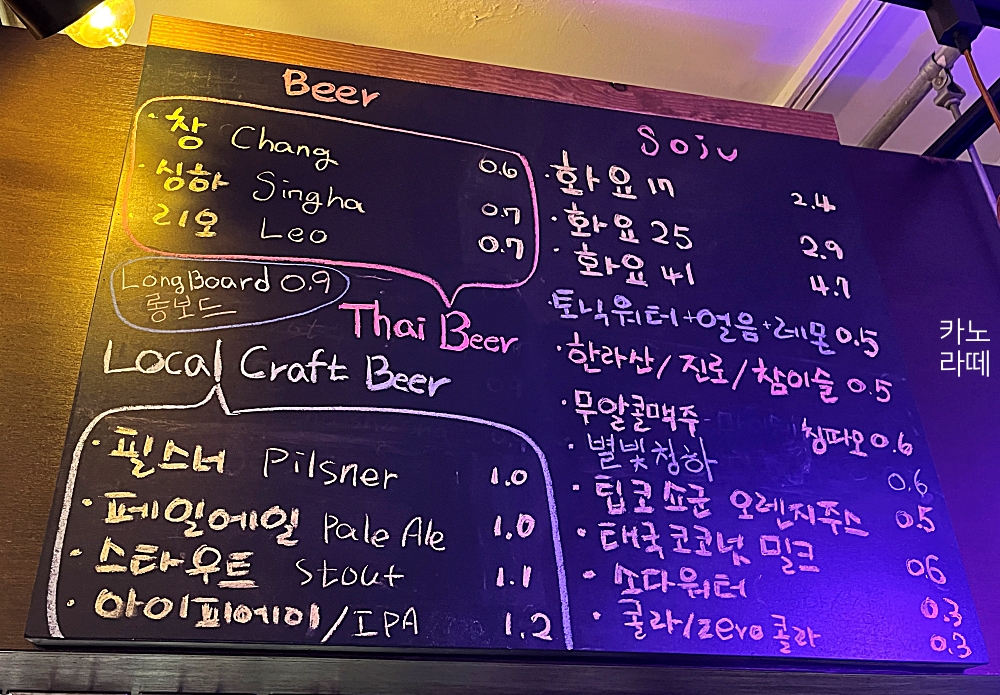 Beer
· 창 Chang 0.6
· 싱하 Singha 0.7
· 리오 Leo 0.7
LongBoard 0.9
롱보드
Thai Beer
Local Craft Beer
· 필스너 Pilsner 1.0
· 페일에일 Pale Ale 1.0
· 스타우트 Stout 1.1
· 아이피에이/IPA 1.2
Soju
· 화요 17 2.4
· 화요 25 2.9
· 화요 41 4.7
· 토닉워터+얼음+레몬 0.5
· 한라산/진로/참이슬 0.5
· 무알콜맥주 칭따오 0.6
· 별빛청하 0.6
· 팁코쇼군 오렌지주스 0.5
· 태국코코넛 밀크 0.6
· 소다워터 0.3
· 콜라/zero콜라 0.3
카노
라떼